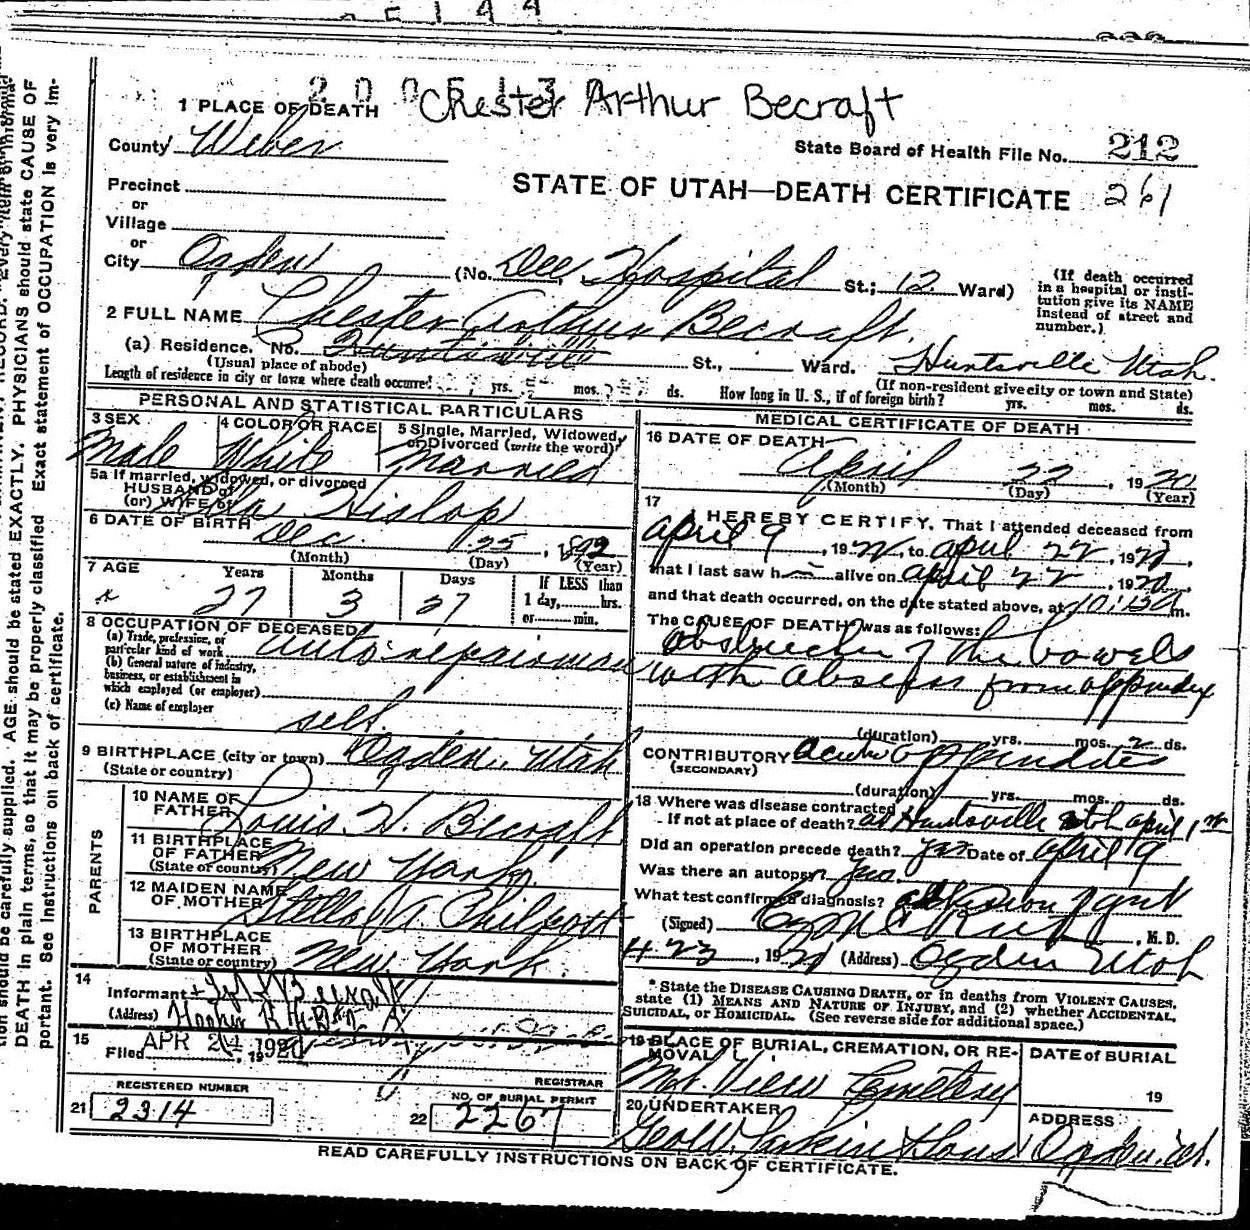 2005130
Chester Arthur Becraft
1 PLACE OF DEATH
County Weber
State Board of Health File No. 212
STATE OF UTAH—DEATH CERTIFICATE 261
Precinct
or
Village
or
City Ogden (No. Dee Hospital St.; 12 Ward)
(If death occurred in a hospital or insti-
tution give its NAME instead of street and number.)
2 FULL NAME Chester Arthur Becraft.
(a) Residence. No. Huntsville St., Ward. Huntsville Utah.
(Usual place of abode) (If non-resident give city or town and State)
Length of residence in city or town where death occurred yrs. mos. ds. How long in U. S., if of foreign birth? yrs. mos. ds.
PERSONAL AND STATISTICAL PARTICULARS
3 SEX Male
4 COLOR OR RACE White
5 Single, Married, Widowed, or Divorced (write the word) Married
5a If married, widowed, or divorced
HUSBAND of
(or) WIFE of Hislop
6 DATE OF BIRTH Dec. 25, 1892
(Month) (Day) (Year)
7 AGE Years Months Days If LESS than
27 3 27 1 day, hrs.
or min.
8 OCCUPATION OF DECEASED
(a) Trade, profession, or particular kind of work auto repairman
(b) General nature of industry, business, or establishment in which employed (or employer)
(c) Name of employer self.
9 BIRTHPLACE (city or town) Ogden, Utah
(State or country)
PARENTS
10 NAME OF FATHER Louis W. Becraft
11 BIRTHPLACE OF FATHER (State or country) New York.
12 MAIDEN NAME OF MOTHER Stella A. Philpott
13 BIRTHPLACE OF MOTHER (State or country) New York.
14
Informant Becraft
(Address) Hooper
15
Filed APR 24 1920
REGISTRAR
REGISTERED NUMBER
21 2314
NO. OF BURIAL PERMIT
22 2267
MEDICAL CERTIFICATE OF DEATH
16 DATE OF DEATH
April 22, 1920
(Month) (Day) (Year)
17
I HEREBY CERTIFY, That I attended deceased from
April 9, 19 , to April 22, 19 ,
that I last saw h alive on April 22, 1920,
and that death occurred, on the date stated above, at m.
The CAUSE OF DEATH was as follows:
obstruction of the bowels
with absess from appendex
(duration) yrs. mos. 2 ds.
CONTRIBUTORY acute appendicitis
(SECONDARY)
(duration) yrs. mos. ds.
18 Where was disease contracted
If not at place of death? at Huntsville Utah April 1st
Did an operation precede death? yes Date of April 9
Was there an autopsy?
What test confirmed diagnosis?
(Signed) , M. D.
4-23, 1920 (Address) Ogden Utah
* State the DISEASE CAUSING DEATH, or in deaths from VIOLENT CAUSES,
state (1) MEANS AND NATURE OF INJURY, and (2) whether ACCIDENTAL,
SUICIDAL, or HOMICIDAL. (See reverse side for additional space.)
19 PLACE OF BURIAL, CREMATION, OR RE-
MOVAL
Mt. View Cemetery
DATE of BURIAL
19
20 UNDERTAKER
Geo W. Larkin & Sons
ADDRESS
Ogden, Ut.
READ CAREFULLY INSTRUCTIONS ON BACK OF CERTIFICATE.
tion should be carefully supplied. AGE should be stated EXACTLY. PHYSICIANS should state CAUSE OF
DEATH in plain terms, so that it may be properly classified. Exact statement of OCCUPATION is very im-
portant. See instructions on back of certificate.